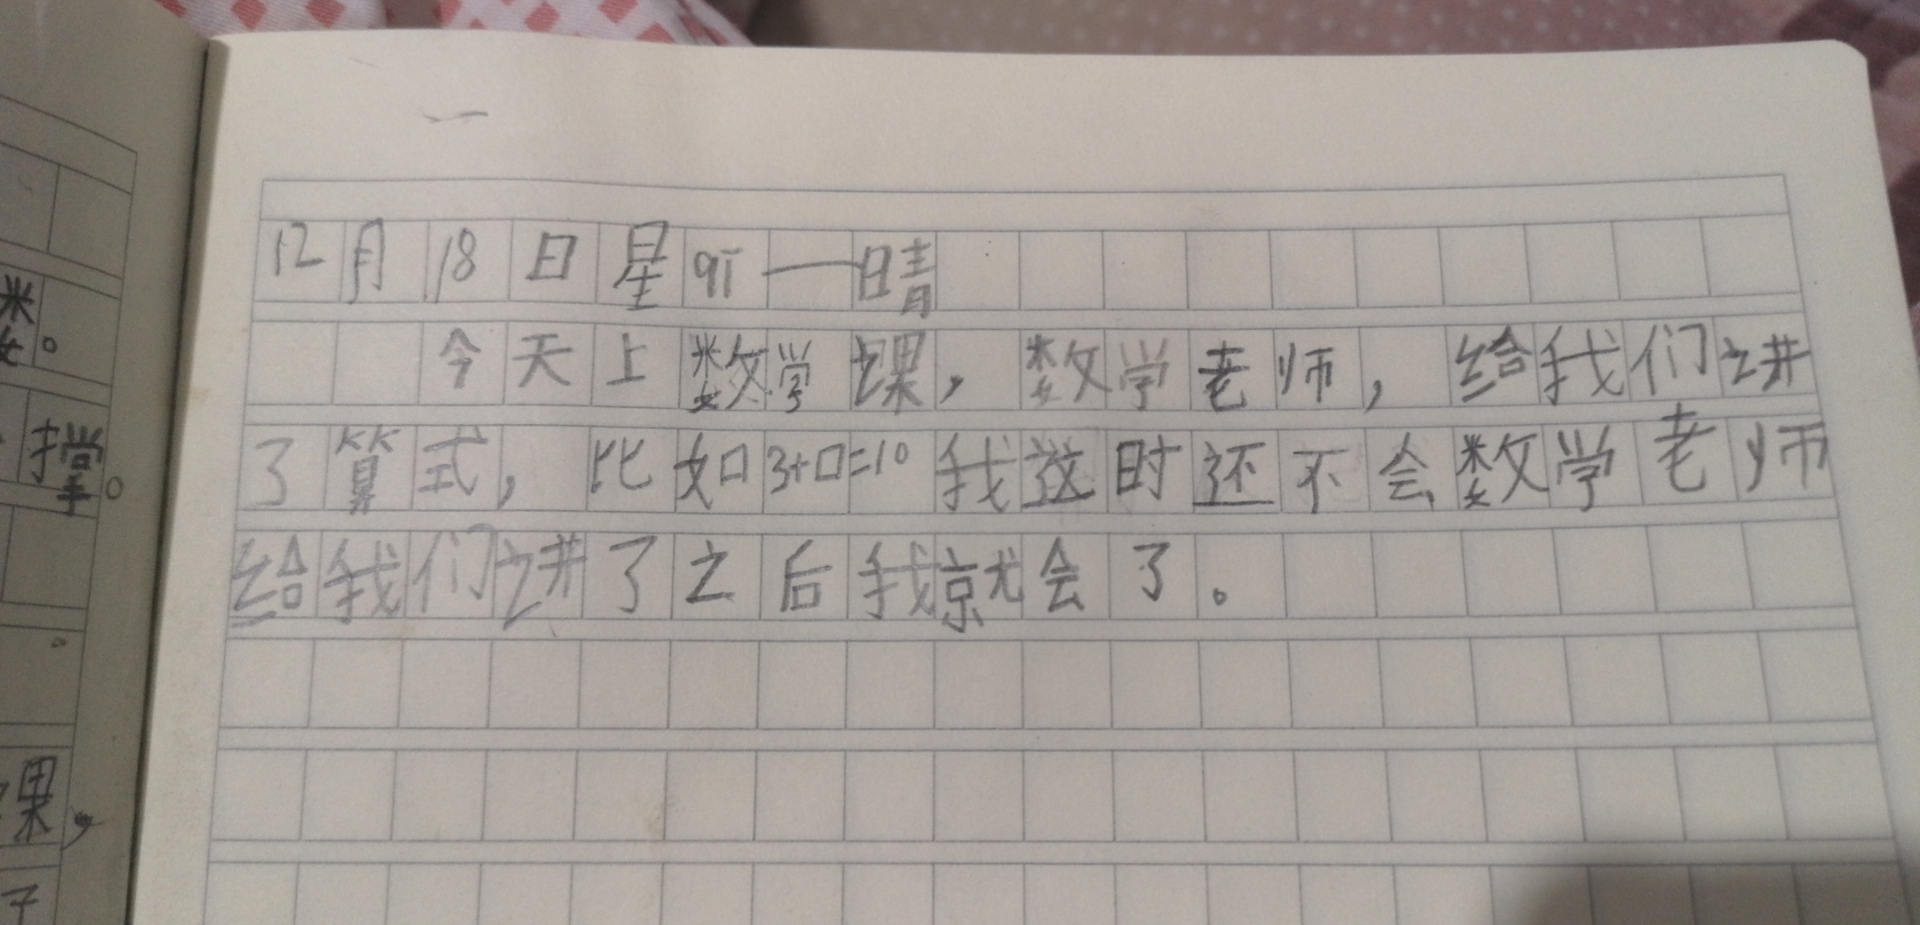 米
女。
撑。
。
课,
子
12月18日星qi一晴
今天上数学课,数学老师,给我们讲
了算式,比如口3+口=10我这时还不会数学老师
给我们讲了之后我就会了。